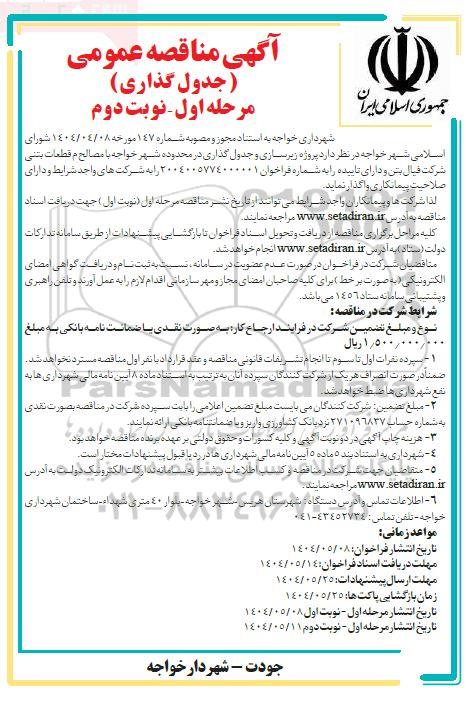 آگهی مناقصه عمومی
(جدول گذاری)
مرحله اول - نوبت دوم
جمهوری اسلامی ایران
شهرداری خواجه به استناد مجوز و مصوبه شماره ۱۴۷ مورخه ۱۴۰۴/۰۴/۰۸ شورای
اسلامی شهر خواجه در نظر دارد پروژه زیرسازی و جدول گذاری در محدوده شهر خواجه با مصالح م قطعات بتنی
شرکت فیال بتن و دارای تاییده را به شماره فراخوان ۲۰۰۴۰۰۵۷۷۴۰۰۰۰۰۱ را به شرکت های واجد شرایط و دارای
صلاحیت پیمانکاری واگذار نماید.
لذا شرکت ها و پیمانکاران واجد شرایط می توانند از تاریخ نشر مناقصه مرحله اول (نوبت اول) جهت دریافت اسناد
مناقصه به آدرس www.setadiran.ir مراجعه نمایند.
کلیه مراحل برگزاری مناقصه از دریافت و تحویل اسناد فراخوان تا بازگشایی پیشنهادات از طریق سامانه تدارکات
دولت (ستاد) به آدرس www.setadiran.ir انجام خواهد شد.
متقاضیان شرکت در فراخوان در صورت عدم عضویت در سامانه، نسبت به ثبت نام و دریافت گواهی امضای
الکترونیکی (به صورت بر خط) برای کلیه صاحبان امضای مجاز و مهر سازمانی اقدام لازم را به عمل آورند و تلفن راهبری
و پشتیبانی سامانه ستاد ۱۴۵۶ می باشد.
شرایط شرکت در مناقصه:
نوع و مبلغ تضمین شرکت در فرایند ارجاع کار: به صورت نقدی یا ضمانت نامه بانکی به مبلغ
۱,۵۰۰,۰۰۰,۰۰۰ ریال
۱- سپرده نفرات اول تا سوم تا انجام تشریفات قانونی مناقصه و عقد قرارداد با نفر اول مناقصه مسترد نخواهد شد.
ضمناً در صورت انصراف هر یک از شرکت کنندگان سپرده آنان به ترتیب به استناد ماده ۸ آیین نامه مالی شهرداری ها به
نفع شهرداری ها ضبط خواهد شد.
۲- مبلغ تضمین: شرکت کنندگان می بایست مبلغ تضمین اعلامی را بابت سپرده شرکت در مناقصه بصورت نقدی
به شماره حساب ۲۷۱۰۹۶۸۳۷ نزد بانک کشاورزی واریز و یا ضمانتنامه بانکی ارائه نمایند.
۳- هزینه چاپ آگهی در دو نوبت آگهی و کلیه کسورات و حقوق دولتی بر عهده برنده مناقصه خواهد بود.
۴- شهرداری به استناد بند ۵ ماده ۵ آیین نامه مالی شهرداری ها در رد یا قبول پیشنهادات مختار است.
۵- متقاضیان جهت شرکت در مناقصه و کسب اطلاعات بیشتر به سامانه تدارکات الکترونیک دولت به آدرس
www.setadiran.ir مراجعه نمایند.
۶- اطلاعات تماس و آدرس دستگاه: شهرستان هریس - شهر خواجه - بلوار ۴۰ متری شهداء - ساختمان شهرداری
خواجه - تلفن تماس: ۴۳۴۵۲۷۳۴-۰۴۱
مواعد زمانی:
تاریخ انتشار فراخوان: ۱۴۰۴/۰۵/۰۸
مهلت دریافت اسناد فراخوان: ۱۴۰۴/۰۵/۱۴
مهلت ارسال پیشنهادات: ۱۴۰۴/۰۵/۲۵
زمان بازگشایی پاکت ها: ۱۴۰۴/۰۵/۲۵
تاریخ انتشار مرحله اول - نوبت اول ۱۴۰۴/۰۵/۰۸
تاریخ انتشار مرحله اول - نوبت دوم ۱۴۰۴/۰۵/۱۱
جودت - شهردار خواجه